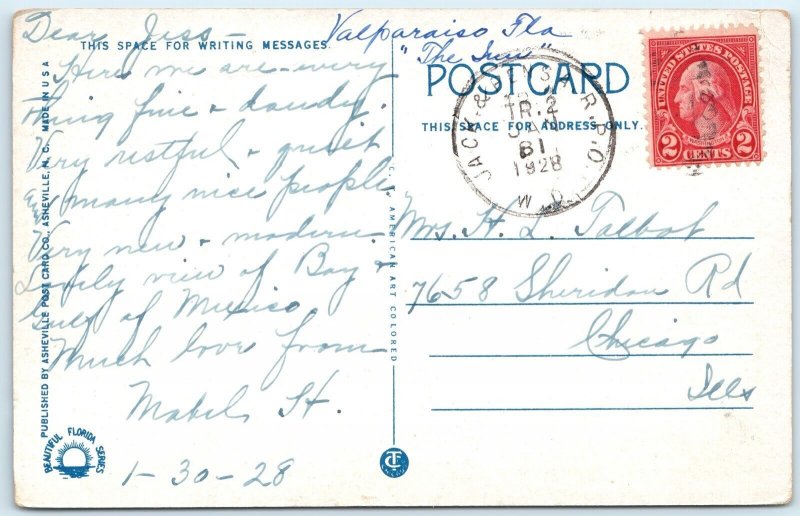 Dear Jess –
THIS SPACE FOR WRITING MESSAGES.
Here we are – every
thing fine & dandy.
Very restful & quiet
& many nice people
Very new & modern.
Lovely view of Bay &
Gulf of Mexico
Much love from
Mabel H.
1-30-28
PUBLISHED BY ASHEVILLE POST CARD CO., ASHEVILLE, N. C. MADE IN U S A
BEAUTIFUL FLORIDA SERIES
C. T. AMERICAN ART COLORED
Valparaiso Fla
"The Inn"
POSTCARD
THIS SPACE FOR ADDRESS ONLY.
JACK. & R.P.O.
TR.2
31
1928
W.D.
UNITED STATES POSTAGE
WASHINGTON
2 CENTS 2
Mrs. H. L. Talbot
7658 Sheridan Rd
Chicago
Ills